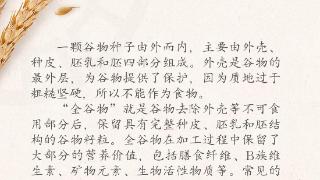 一颗谷物种子由外而内，主要由外壳、
种皮、胚乳和胚四部分组成。外壳是谷物的
最外层，为谷物提供了保护，因为质地过于
粗糙坚硬，所以不能作为食物。
“全谷物”就是谷物去除外壳等不可食
用部分后，保留具有完整种皮、胚乳和胚结
构的谷物籽粒。全谷物在加工过程中保留了
大部分的营养价值，包括膳食纤维、B族维
生素、矿物元素、生物活性物质等。常见的